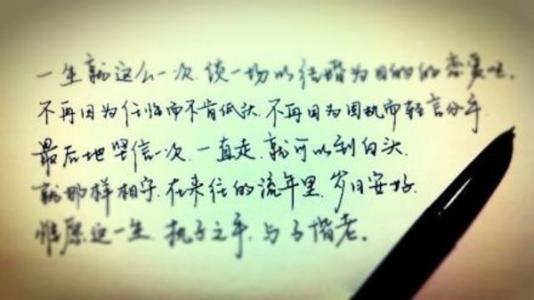 一生就这么一次,谈一场以结婚为目的的恋爱吧。
不再因为任性而不肯低头,不再因为固执而轻言分手.
最后地坚信一次,一直走,就可以到白头.
就那样相守,在来往的流年里,岁月安好.
惟愿这一生,执子之手,与子偕老。